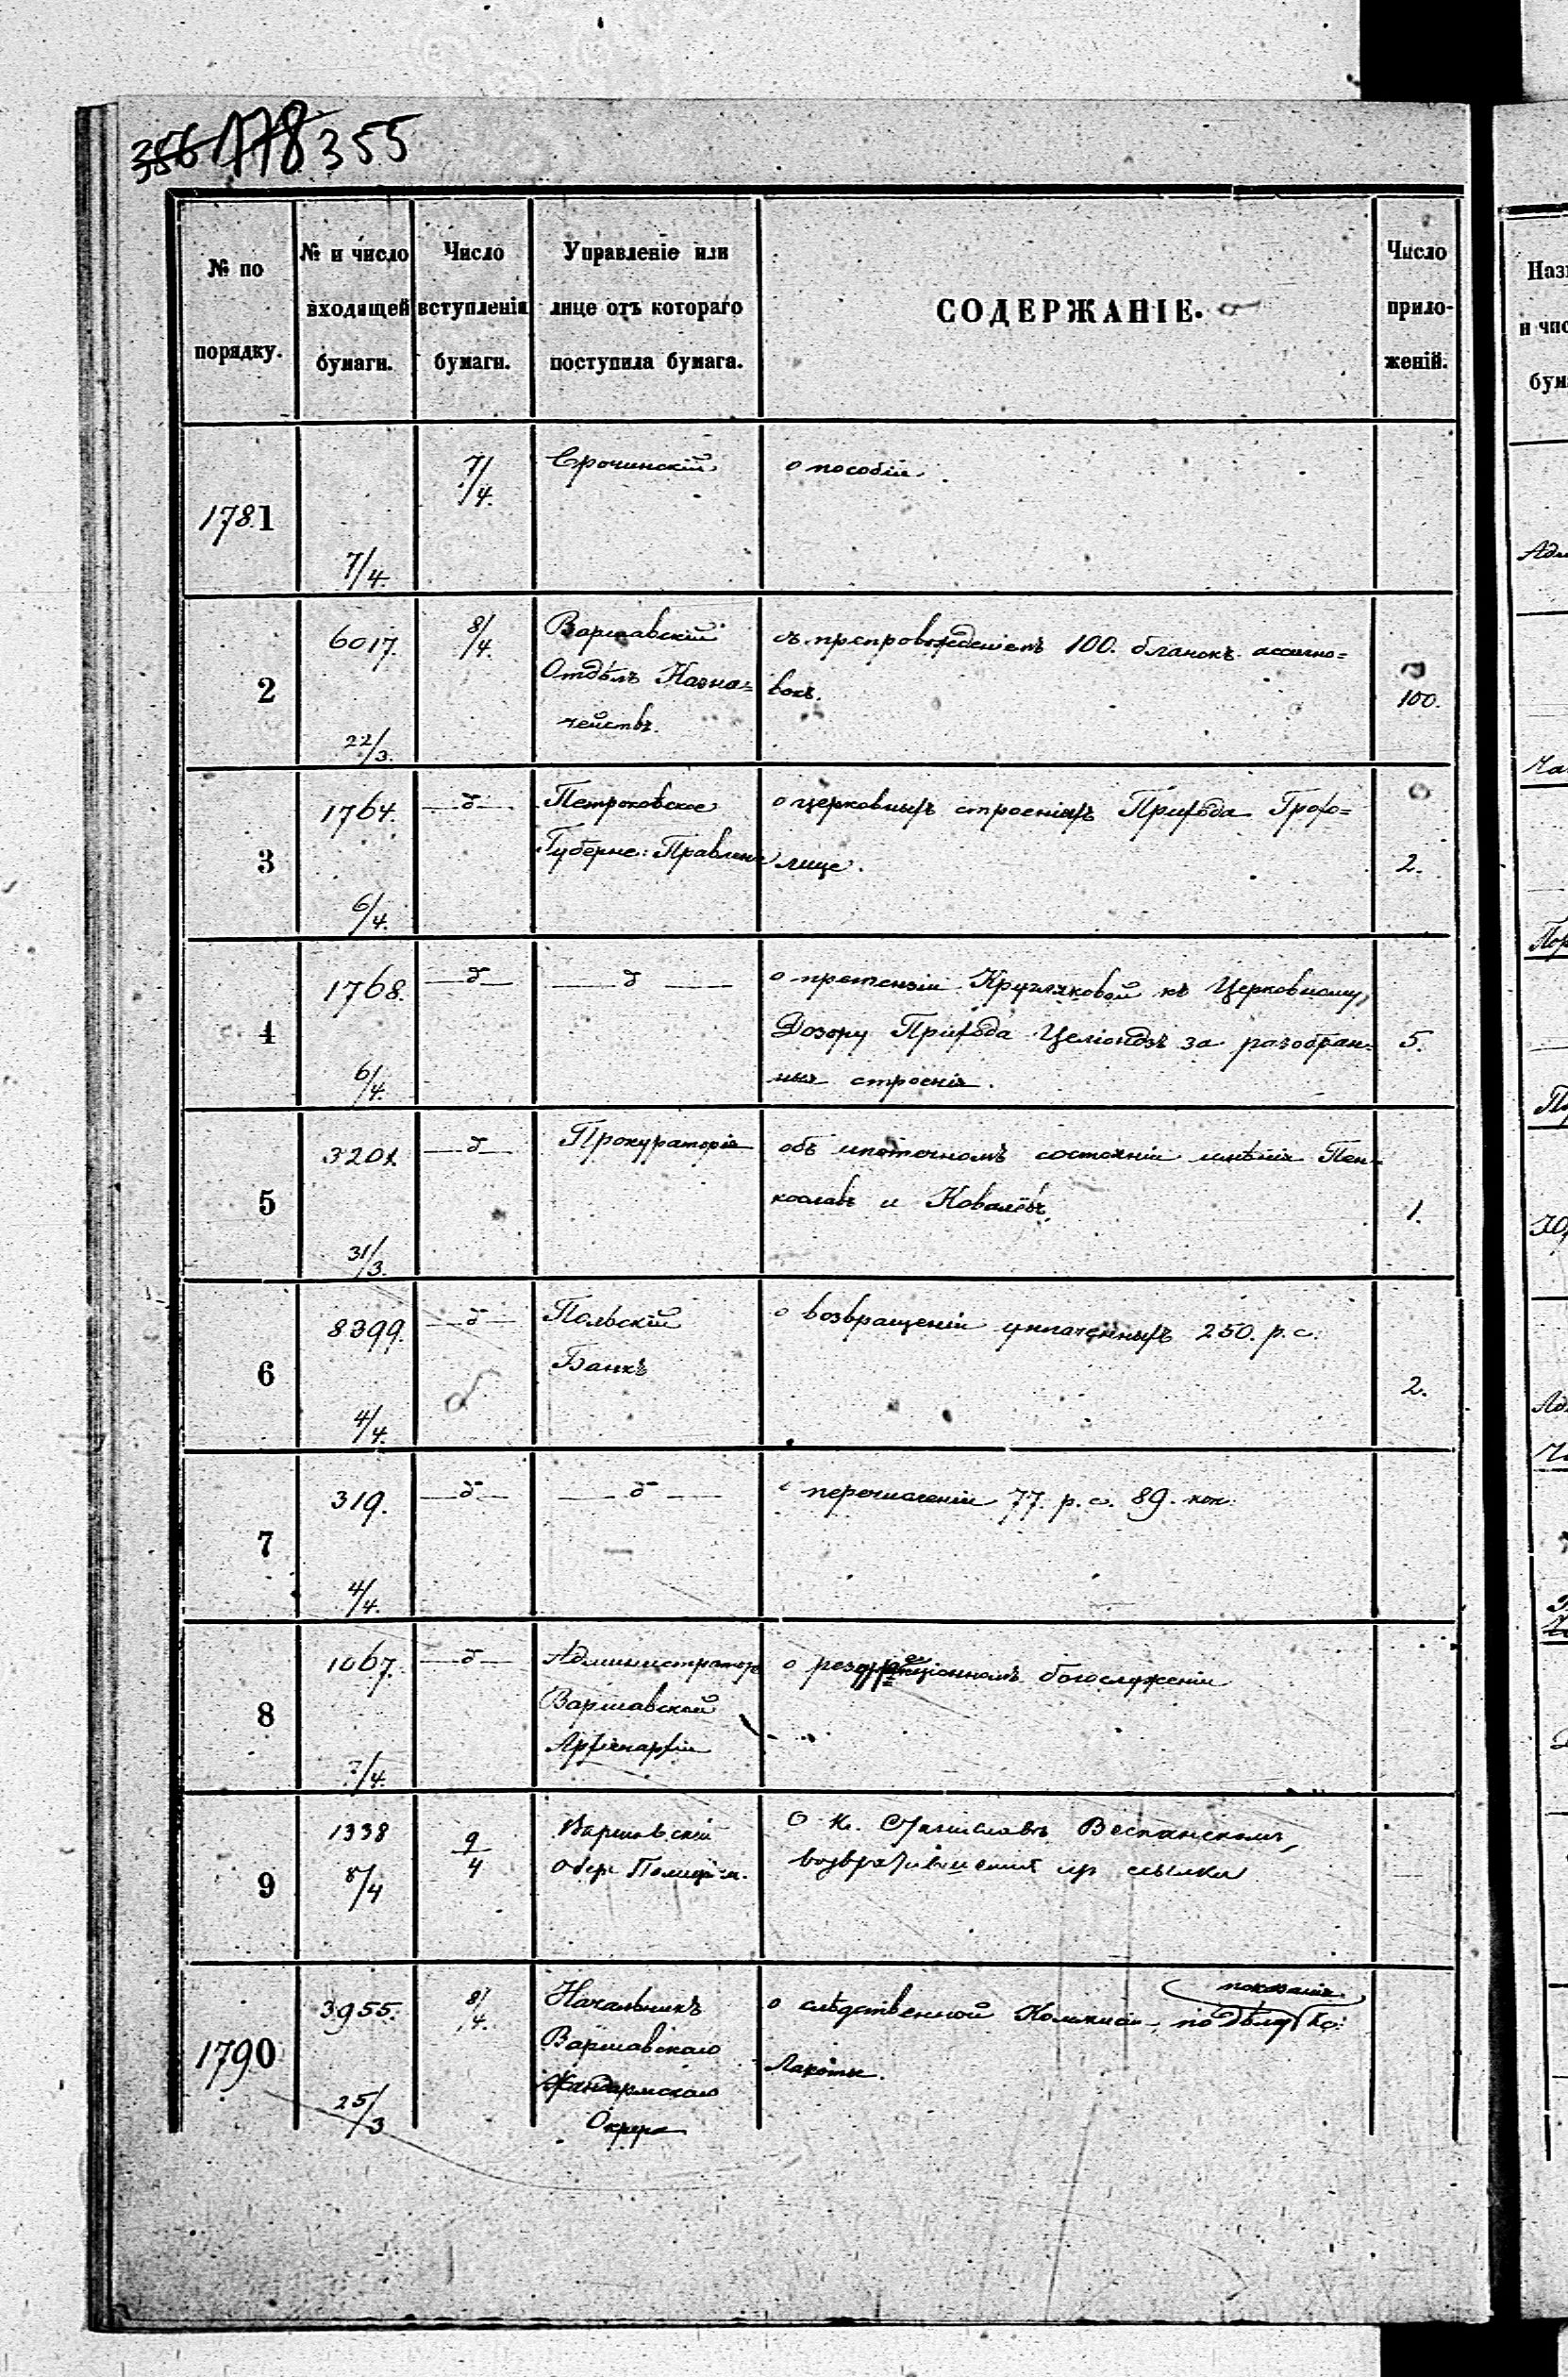 356 178 355
№ по порядку.
№ и число входящей бумаги.
Число вступленія бумаги.
Управленіе или лице отъ котораго поступила бумага.
СОДЕРЖАНІЕ.
Число приложеній.
1781
7/4.
7/4.
Срочинскій
о пособіи.
2
6017.
22/3.
8/4.
Варшавскій
Отдѣлъ Казна=
чействъ.
съ препровожденіемъ 100. бланокъ ассигно=
вокъ.
100.
3
1764.
6/4.
—д—
Петроковское
Губернс: Правлені
о церковныхъ строеніяхъ Прихода Грохо=
лице.
2.
4
1768.
6/4.
—д—
—д—
о претензіи Кругляковой къ Церковному
Дозору Прихода Целіондзъ за разобран=
ныя строенія.
5.
5
3201.
31/3.
—д—
Прокураторія
объ ипотечномъ состояніи имѣнія Пен=
кославъ и Ковалёвъ.
1.
6
8399.
4/4.
—д—
Польскій
Банкъ
о возвращеніи уплоченныхъ 250. р. с.
2.
7
319.
4/4.
—д—
—д—
о перечисленіи 77. р. с. 89. коп.
8
1067.
7/4.
—д—
Администраторъ
Варшавской
Архіепархіи
о богослуженіи
9
1338
8/4
9/4
Варшавскій
Обер Полицім.
О К. Станиславѣ
возвратившемся изъ ссылки
1790
3955.
25/3
8/4.
Начальникъ
Варшавскаго
Жандармскаго
Округа
показанія
о слѣдственной Коммисіи по дѣлу Кс:
Лакоты.
Наз
и чис
бум